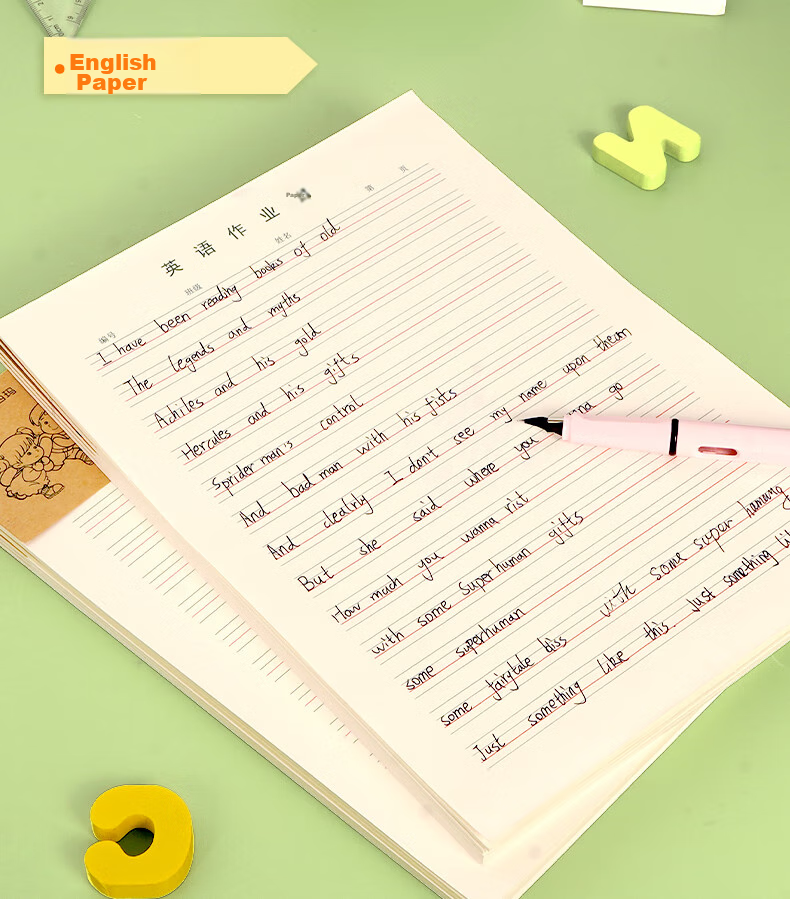 English
Paper
英语作业
Paper
第 页
班级 姓名
编号
I have been reading books of old
The legends and myths
Achiles and his gold
Hercules and his gifts
Sprider man's control
And bad man with his fists
And clealrly I don't see my name upon
But she said where you go
How much you wanna rist
with some Superhuman gifts
some superhuman
some fairytale biss with some super
Just something like this. Just something